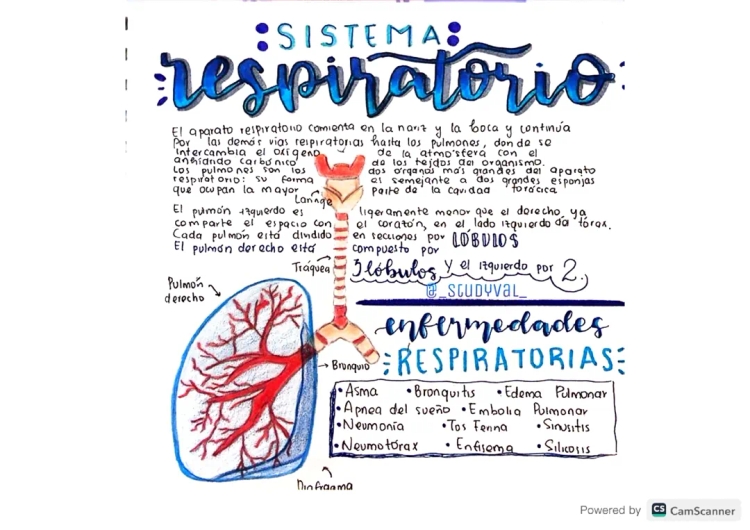 SISTEMA
respiratorio
El aparato respiratorio comienta en la nariz y la boca y continúa
por las demás vias respiratorias hasta los pulmones, donde se
intercambia el oxígeno de la atmósfera con el
anhídrido carbónico de los tejidos del organismo.
Los pulmones son los dos órganos más grandes del aparato
respiratorio: su forma es semejante a dos grandes esponjas
que ocupan la mayor parte de la cavidad torácica
Laringe
El pulmón izquierdo es ligeramente menor que el derecho, ya
comparte el espacio con el corazón, en el lado izquierdo del tórax.
Cada pulmón está dividido en secciones por LÓBULOS
El pulmón derecho está compuesto por
Tráquea
3 lóbulos y el izquierdo por 2.
@_STUDYVAL_
Pulmón
derecho
enfermedades
RESPIRATORIAS
Bronquio
• Asma • Bronquitis • Edema Pulmonar
• Apnea del sueño • Embolia Pulmonar
• Neumonía • Tos Ferina • Sinusitis
• Neumotórax • Enfisema • Silicosis
Diafragma
Powered by CS CamScanner